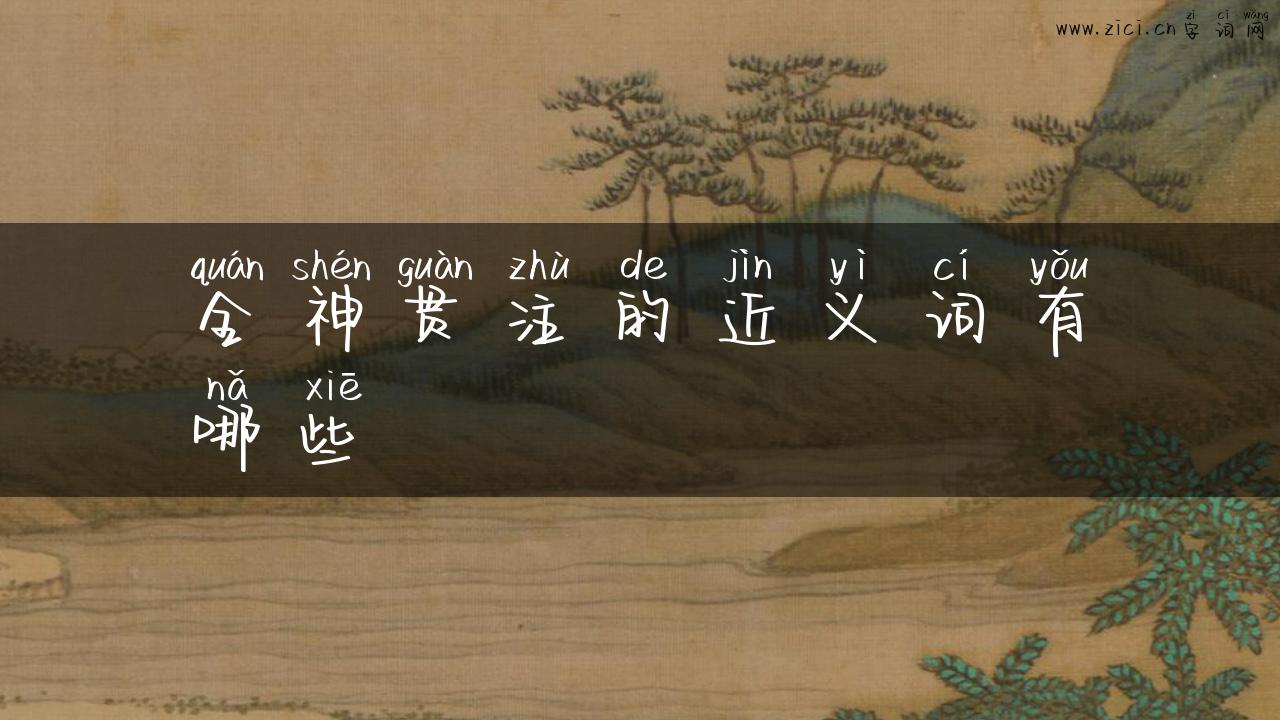 zì cí wǎng
www.zici.cn 字词网
quán shén guàn zhù de jìn yì cí yǒu
全神贯注的近义词有
nǎ xiē
哪些